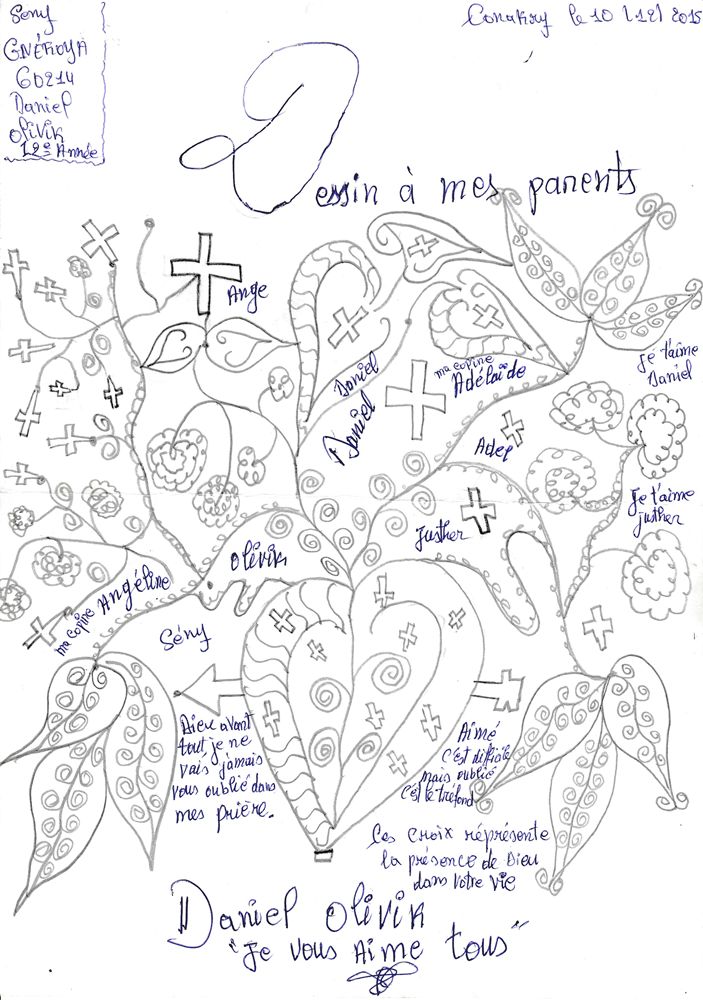 Seny
GNÉKOYA
60214
Daniel
Olivik
12e Année
Conakry le 10 (12) 2015
Dessin à mes parents
Ange
Daniel
Daniel
ma copine
Adélaïde
Je t'aime
Daniel
Adep
Justher
Je t'aime
justher
Olivik
ma copine Angéline
Sény
Dieu avant
tout je ne
vais jamais
vous oublié dans
mes prière.
Aimé
C'est difficile
mais oublié
C'est le tréfond
Ces croix réprésente
la présence de Dieu
dans votre vie
Daniel Olivik
"Je vous Aime tous"